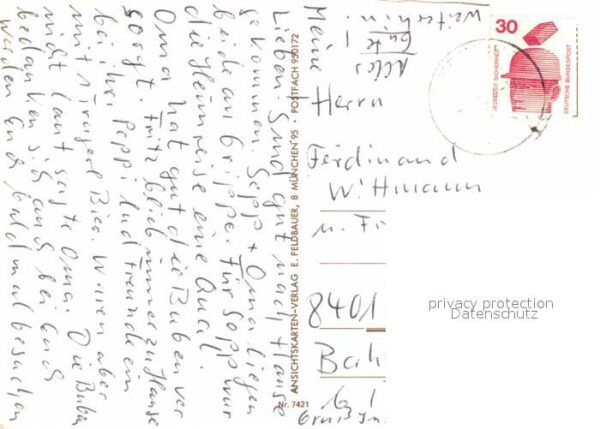 Meine
Lieben. Sind gut nach Hause
gekommen. Sepp + Oma liegen
beide an Grippe. Für Sepp war
die Heimreise eine Qual.
Oma hat gut die Buben ver
sorgt. Fritz blieb immer zu Hause
bei ihr. Peppi lud Freunde ein
mit Bier. Waren aber
nicht laut sagte Oma. Die Buben
bedanken sich auch bei Euch
werden Euch bald mal besuchen
Weiterhin
Alles
Gute!
Nr. 7421
ANSICHTSKARTEN-VERLAG E. FELDBAUER, 8 MÜNCHEN 95 · POSTFACH 950172
30
JEDERZEIT SICHERHEIT
DEUTSCHE BUNDESPOST
Herrn
Ferdinand
Wittmann
u. F
8401
Bah
privacy protection
Datenschutz